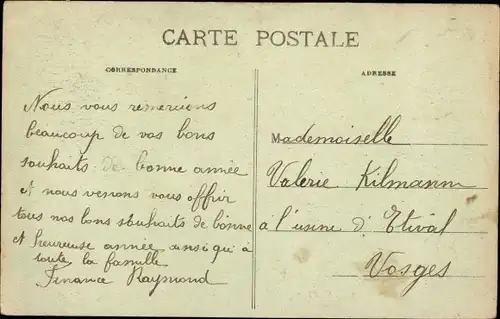 CARTE POSTALE
CORRESPONDANCE
Nous vous remercions
beaucoup de vos bons
souhaits de bonne année
et nous venons vous offrir
tous nos bons souhaits de bonne
et heureuse année ainsi qu'à
toute la famille
Finance Raymond
ADRESSE
Mademoiselle
Valerie Kilmann
à l'usine d'Etival
Vosges